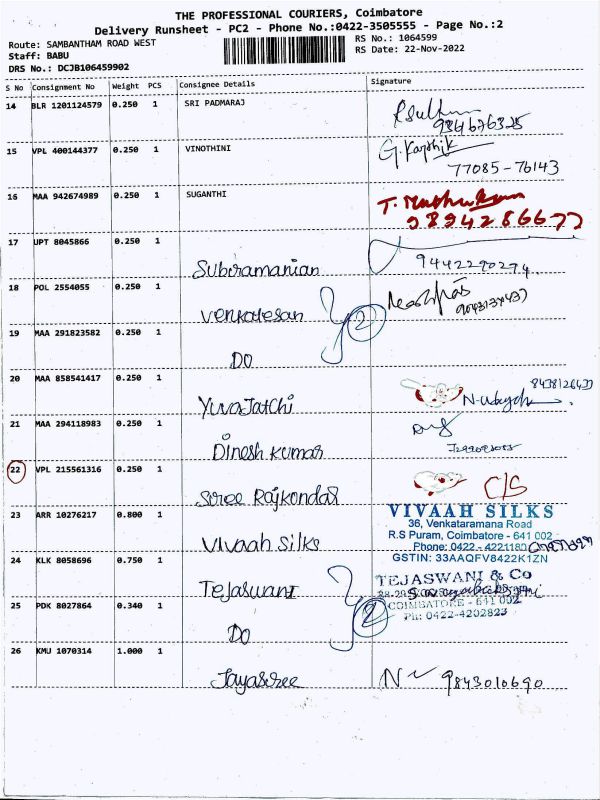 THE PROFESSIONAL COURIERS, Coimbatore
Delivery Runsheet - PC2 - Phone No.:0422-3505555 - Page No.:2
Route: SAMBANTHAM ROAD WEST
RS No.: 1064599
Staff: BABU
RS Date: 22-Nov-2022
DRS No.: DCJB106459902
S No Consignment No Weight PCS Consignee Details Signature
14 BLR 1201124579 0.250 1 SRI PADMARAJ
15 VPL 400144377 0.250 1 VINOTHINI G. Karthik
77085-76143
16 MAA 942674989 0.250 1 SUGANTHI
9894286677
17 UPT 8045866 0.250 1
Subramanian 9442290294
18 POL 2554055 0.250 1
Venkatesan 2
19 MAA 291823582 0.250 1
DO
20 MAA 858541417 0.250 1
Yuvajatchi
21 MAA 294118983 0.250 1
Dinesh kumar
22 VPL 215561316 0.250 1 C/S
Sree Rajkondal
23 ARR 10276217 0.800 1
Vivaah Silks
VIVAAH SILKS
36, Venkataramana Road
R.S Puram, Coimbatore - 641 002
Phone: 0422 - 4221180
GSTIN: 33AAQFV8422K1ZN
24 KLK 8058696 0.750 1
Tejaswani 2
TEJASWANI & Co
COIMBATORE - 641 002
Ph: 0422-4202823
25 PDK 8027864 0.340 1
DO
26 KMU 1070314 1.000 1
Jayasree 9843010690